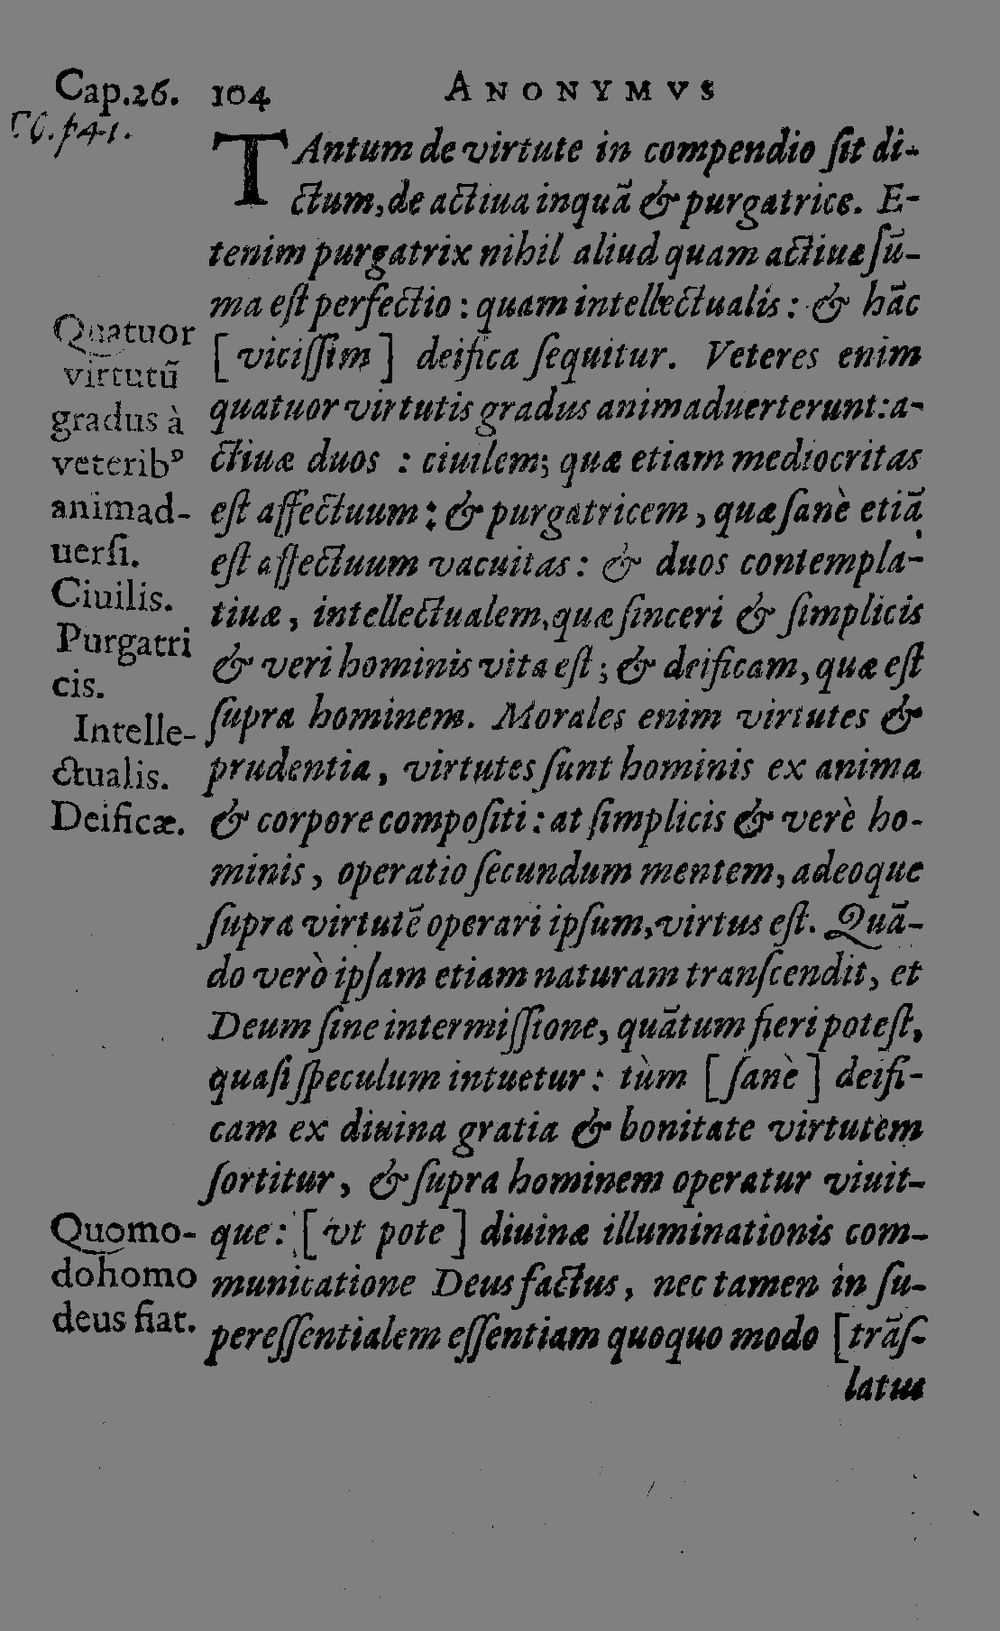 Cap.26. 104 ANONYMVS
p41.
TAntum de virtute in compendio ſit di-
ctum, de actiua inquã & purgatrice. E-
tenim purgatrix nihil aliud quam actiuæ ſũ-
ma eſt perfectio : quam intellectualis : & hãc
[ viciſſim ] deifica ſequitur. Veteres enim
quatuor virtutis gradus animaduerterunt: a-
ctiuæ duos : ciuilem; quæ etiam mediocritas
eſt affectuum : & purgatricem, quæ ſanè etiã
eſt affectuum vacuitas : & duos contempla-
tiuæ, intellectualem, quæ ſinceri & ſimplicis
& veri hominis vita eſt ; & deificam, quæ eſt
ſupra hominem. Morales enim virtutes &
prudentia, virtutes ſunt hominis ex anima
& corpore compoſiti : at ſimplicis & verè ho-
minis, operatio ſecundum mentem, adeoque
ſupra virtutẽ operari ipſum, virtus eſt. Quã-
do verò ipſam etiam naturam tranſcendit, et
Deum ſine intermiſſione, quãtum fieri poteſt,
quaſi ſpeculum intuetur : tùm [ ſanè ] deifi-
cam ex diuina gratia & bonitate virtutem
ſortitur, & ſupra hominem operatur viuit-
que : [ vt pote ] diuinæ illuminationis com-
municatione Deus factus, nec tamen in ſu-
pereſſentialem eſſentiam quoquo modo [ trãſ-
latus
Quatuor
virtutũ
gradus à
veteribꝰ
animad-
uerſi.
Ciuilis.
Purgatri
cis.
Intelle-
ctualis.
Deificæ.
Quomo-
do homo
deus fiat.